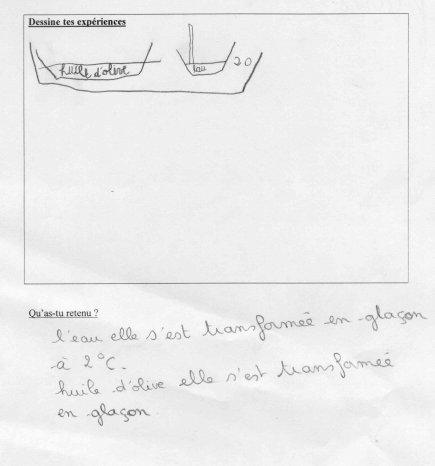 Dessine tes expériences
huile d'olive
eau
20
Qu'as-tu retenu ?
l'eau elle s'est transformeé en glaçon
à 2°C.
huile d'olive elle s'est transformeé
en glaçon.